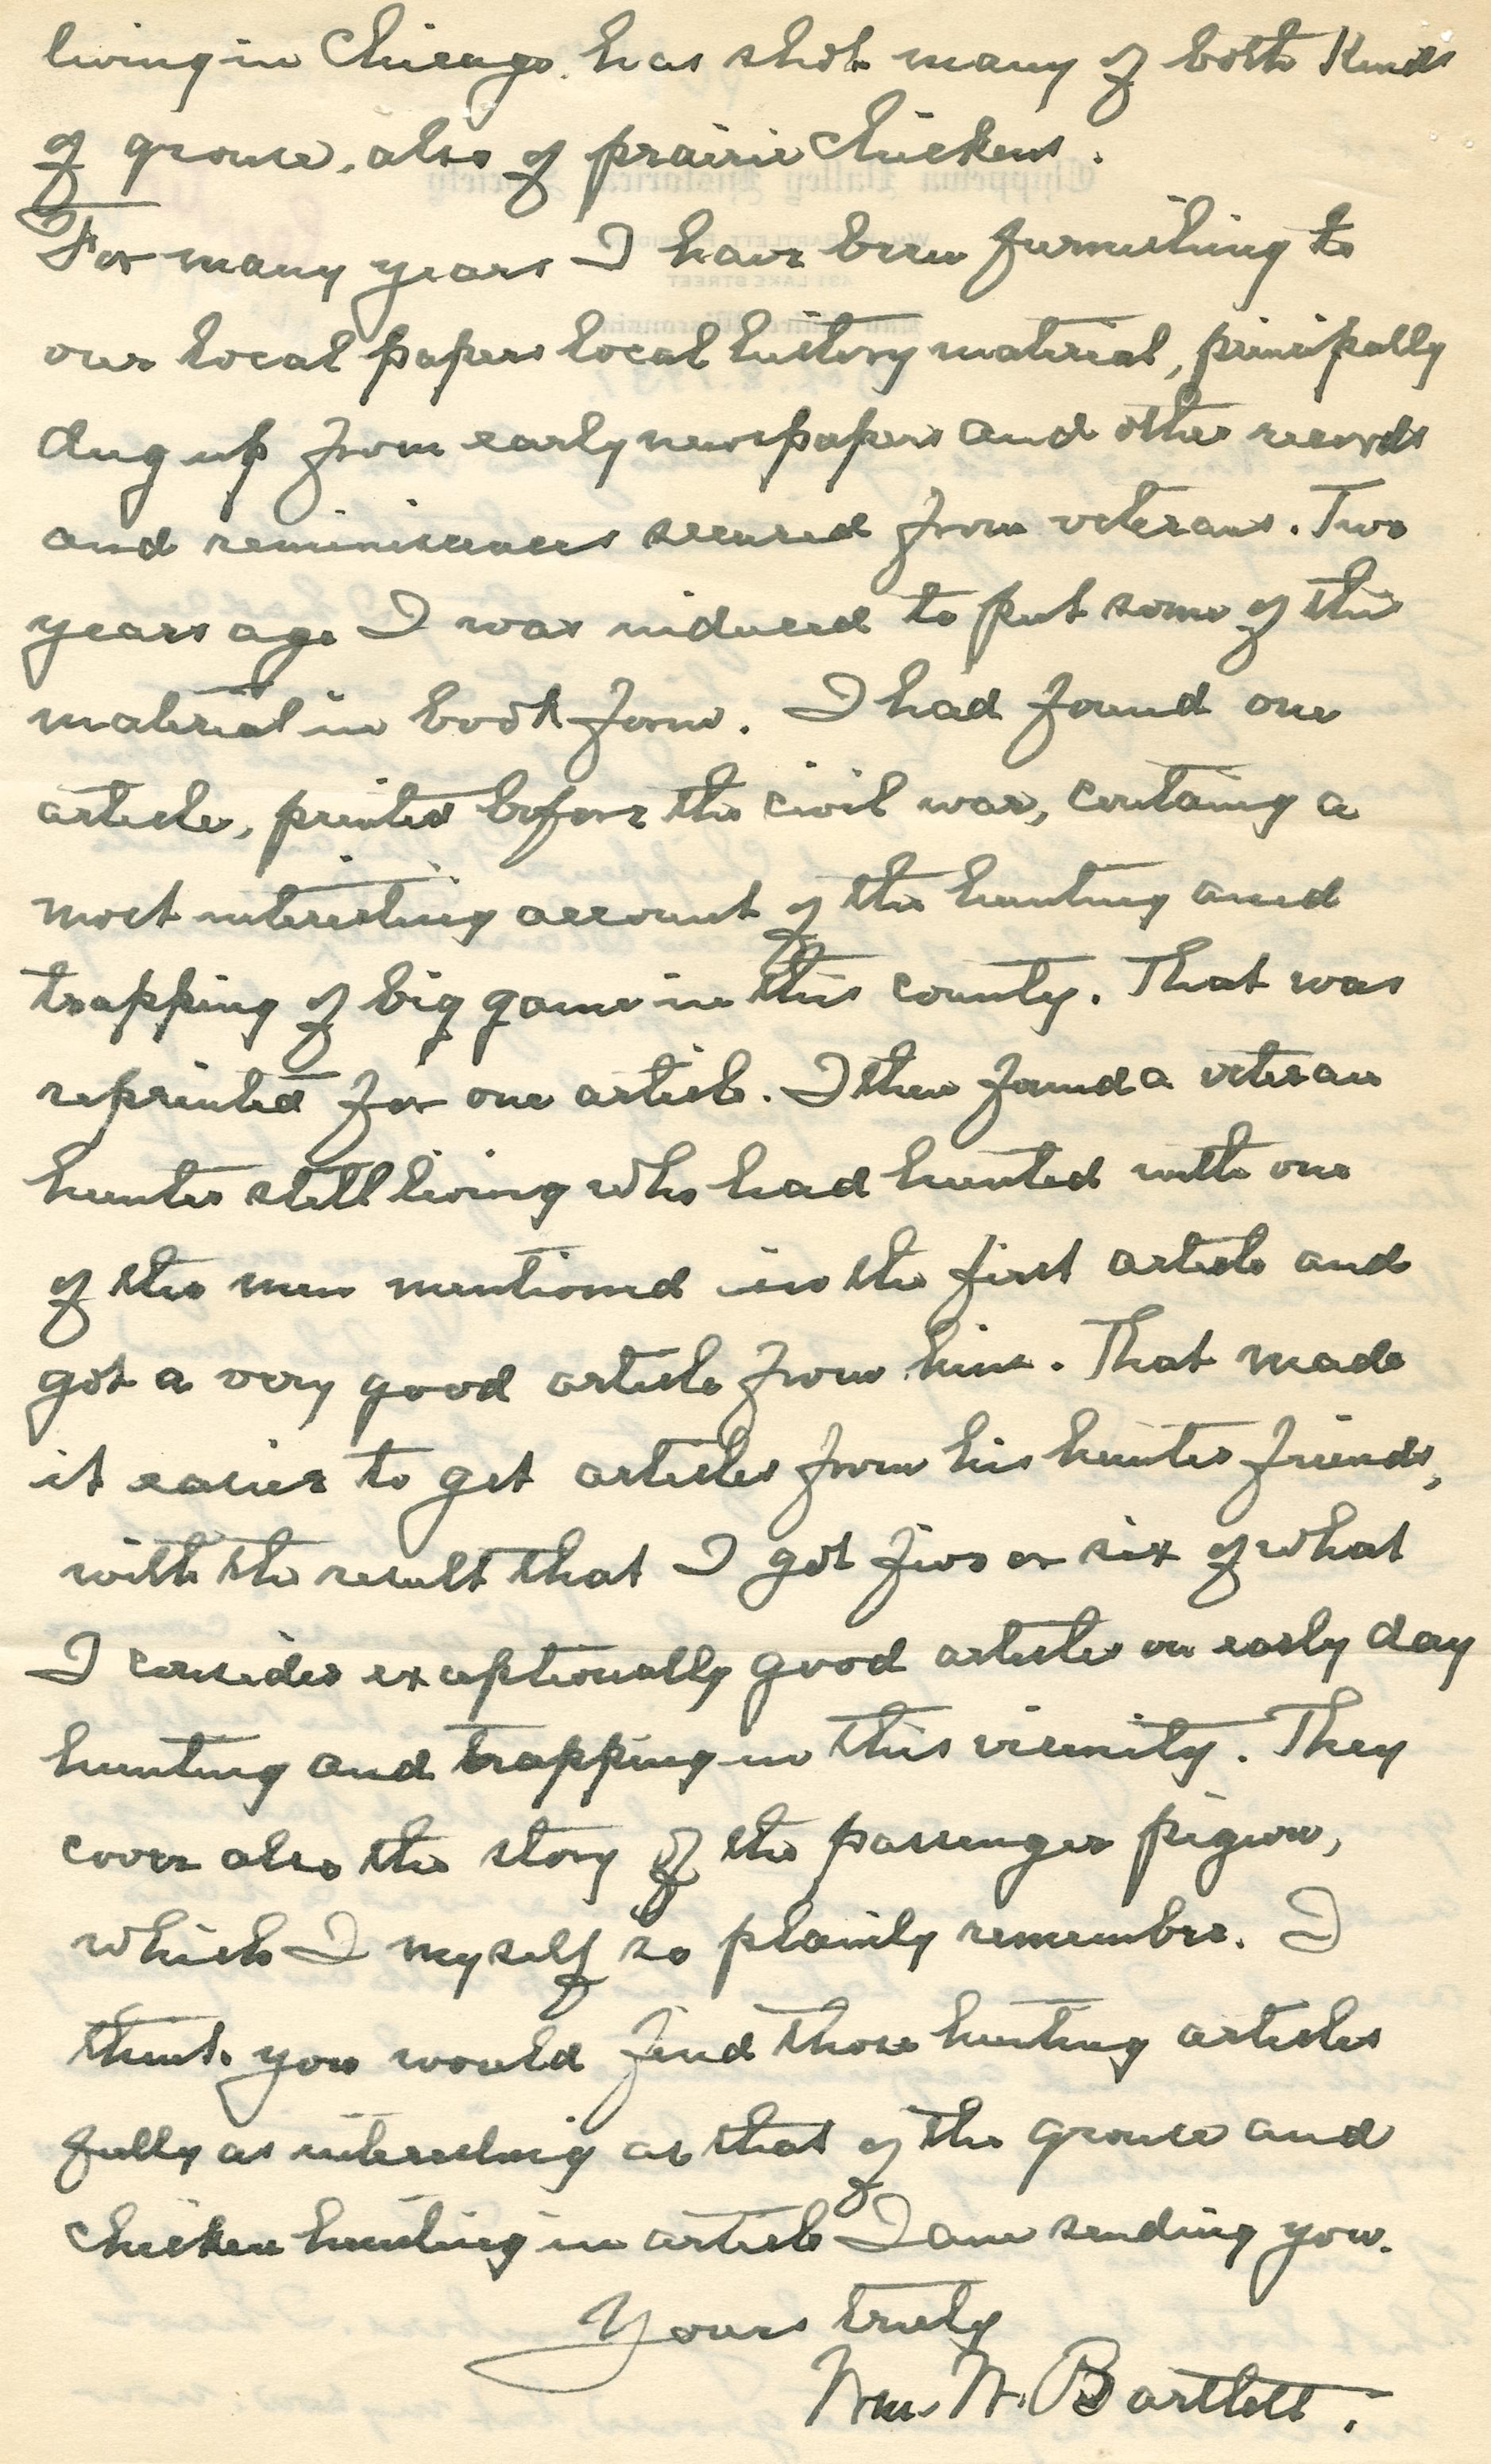 living in Chicago. has shot many of both Kinds
of grouse, also of prairie Chickens.
For many years I have been furnishing to
our local papers local history material, principally
dug up from early newspapers and other records
and reminiscences secured from veterans. Two
years ago I was induced to put some of this
material in book form. I had found one
article, printed before the civil war, containg a
most interesting account of the hunting and
trapping of big game in this county. That was
reprinted for one article. I then found a veteran
hunter still living who had hunted with one
of the men mentioned in the first article and
got a very good article from him. That made
it easier to get articles from his hunter friends,
with the result that I got five or six of what
I consider exceptionally good articles on early day
hunting and trapping in this vicinity. They
cover also the story of the passenger pigeon,
which I myself so plainly remember. I
think you would find those hunting articles
fully as interesting as that of the grouse and
chicken hunting in article I am sending you.
Yours truly
Wm. W. Bartlett.